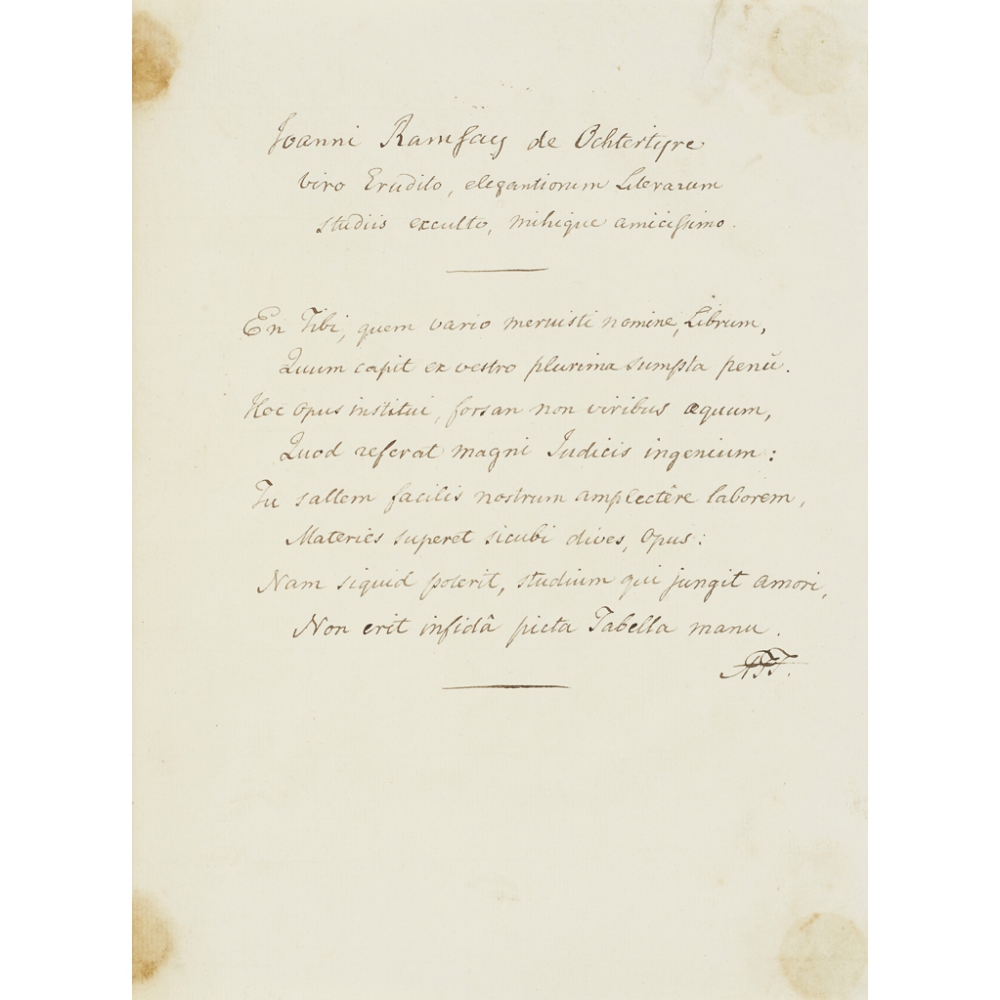 Joanni Ramsay de Ochtertyre
viro Erudito, elegantiorum Literarum
studiis exculto, mihique amicissimo.
En Tibi, quem vario meruisti nomine, Librum,
Quum capit ex vestro plurima sumpta penû.
Hoc opus institui, forsan non viribus æquum,
Quod referat magni Judicis ingenium:
Tu saltem facilis nostrum amplectêre laborem,
Materies superet sicubi dives, Opus:
Nam siquid poterit, studium qui jungit amori,
Non erit infidâ picta Tabella manu.
AFT.